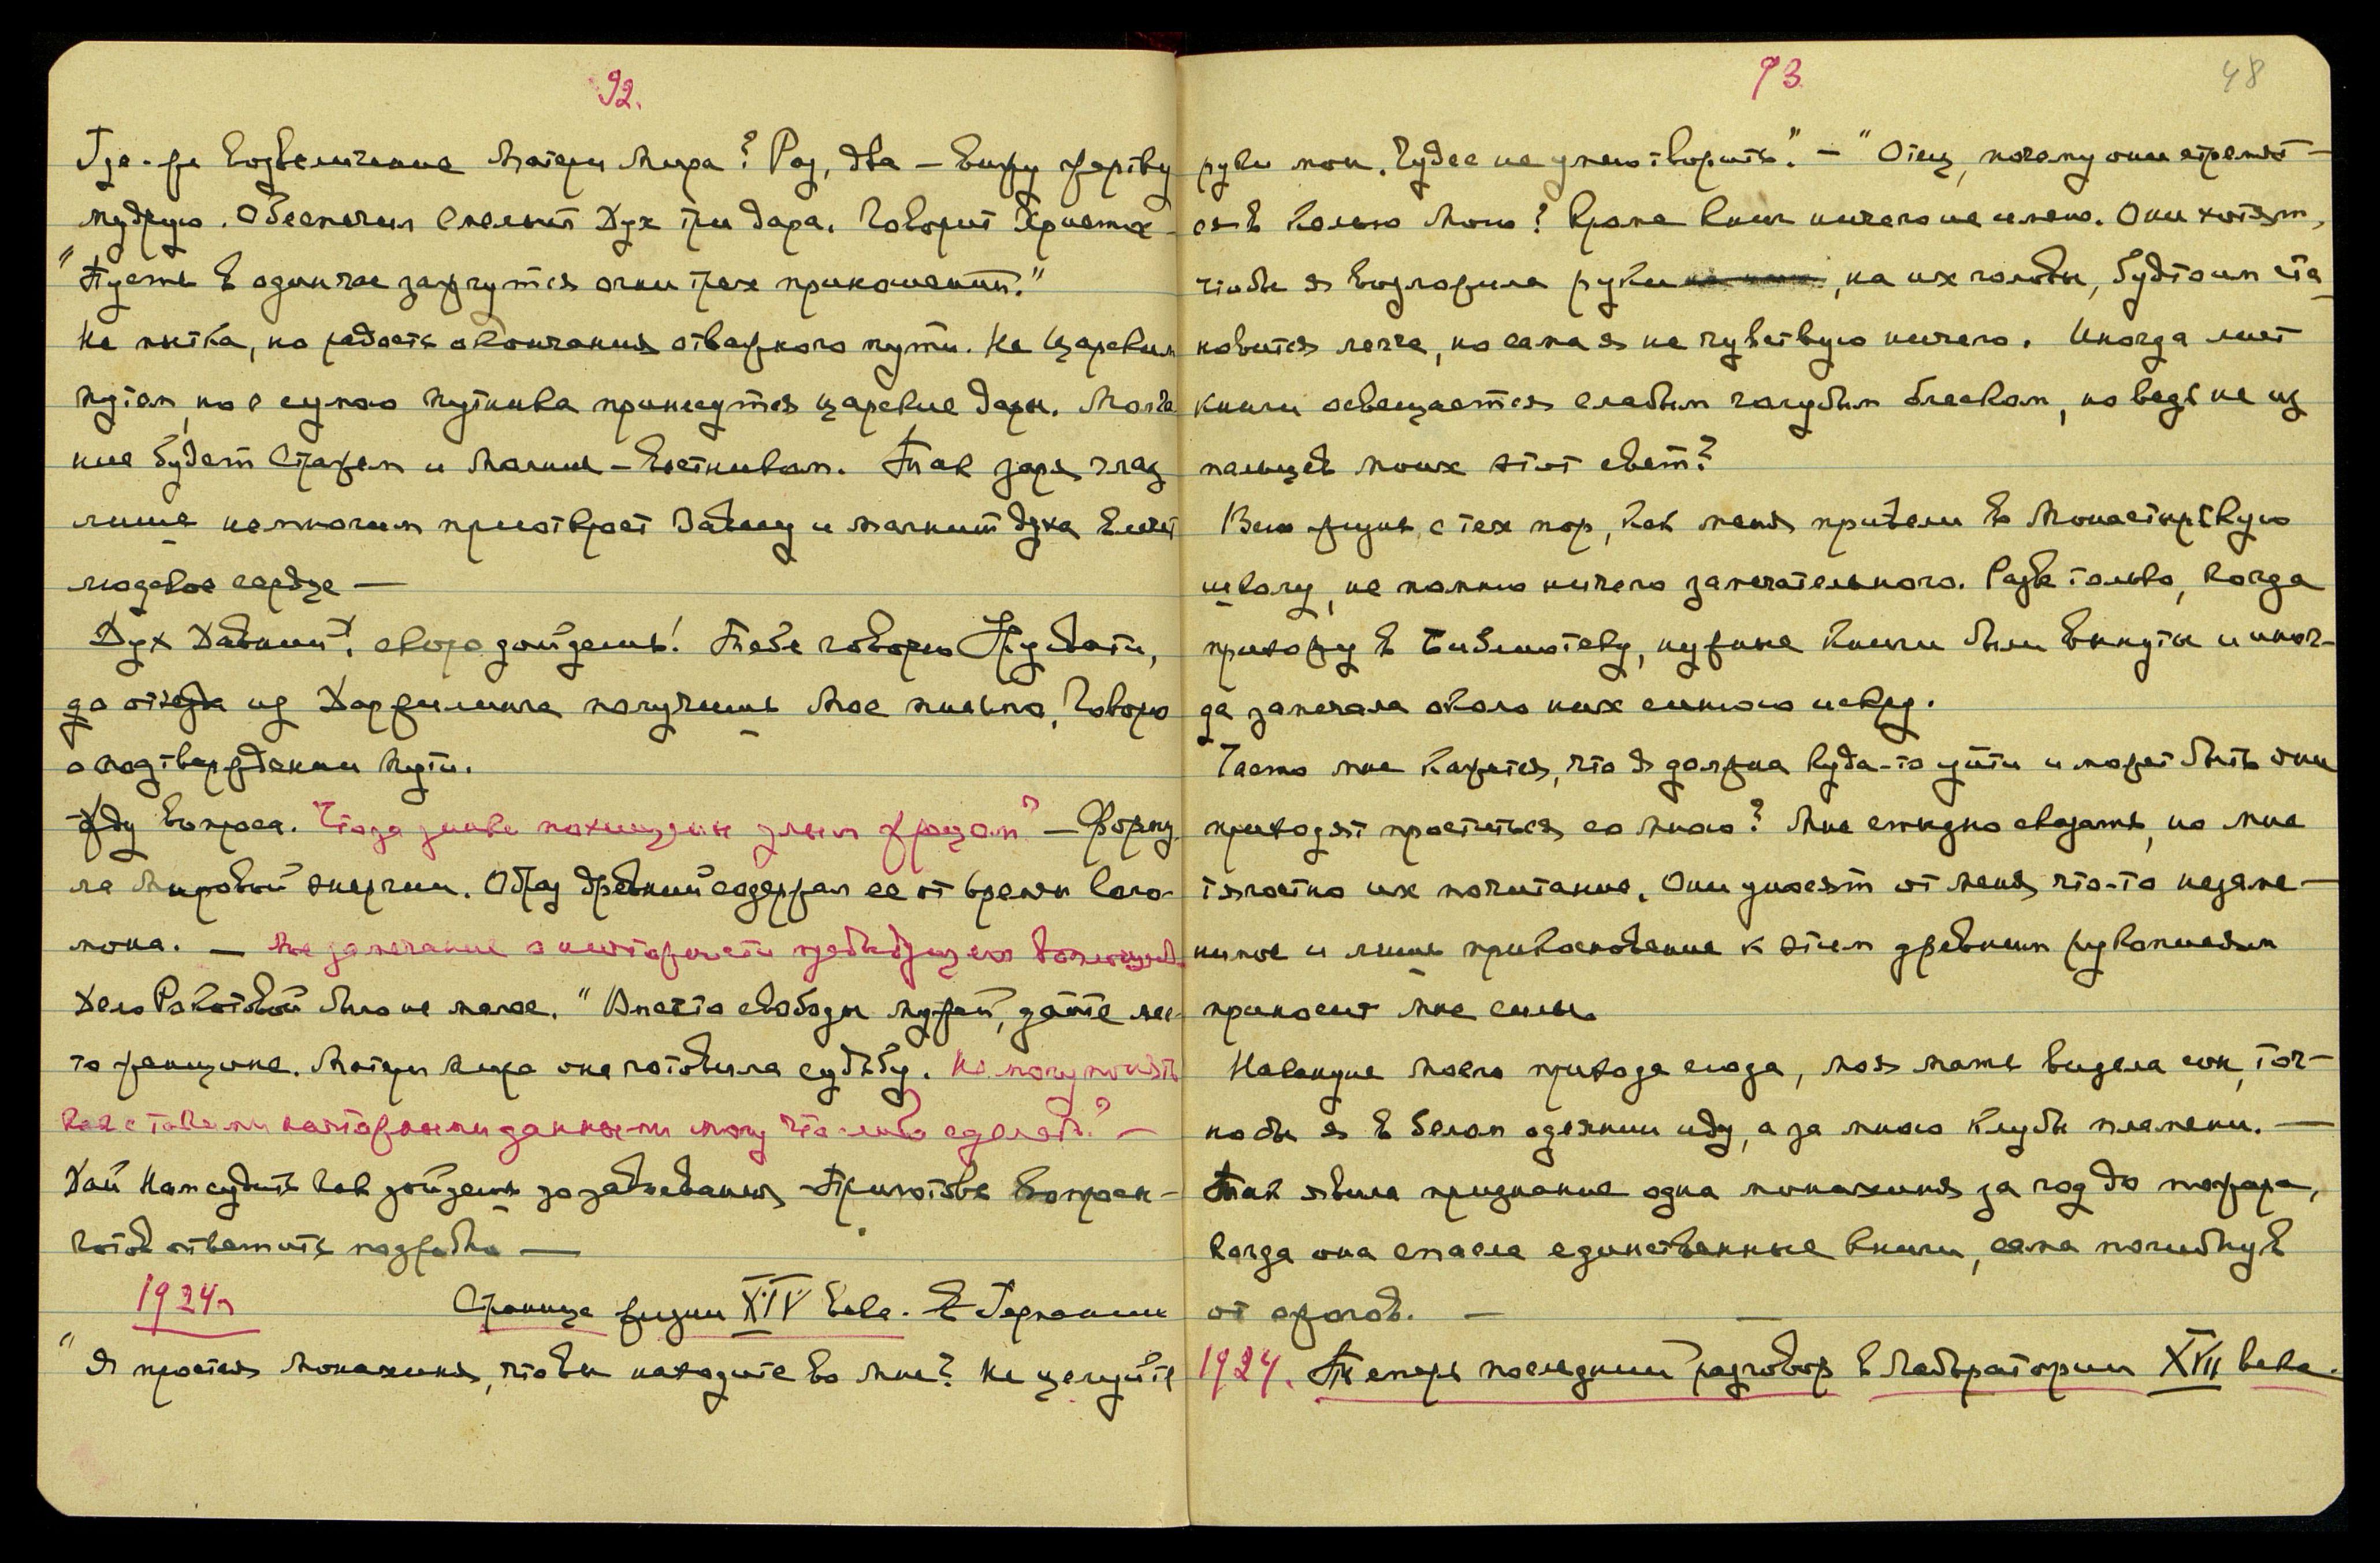 92.
Где-же возвеличение Матери Мира? Раз, два – вижу жертву
мудрую. Обеспечил смелый Дух три дара. Говорит Христос –
"Пусть в один час зажгутся огни трех приношений."
Не пытка, но радость окончания отважного пути. Не царским
путем, но с сумою путника принесутся царские дары. Молча-
ние будет стражем и молния – вестником. Так заря глаз
лишь немногим приоткроет завесу и магнит духа
людское сердце —
Дух Давний, скоро дойдешь! Тебе говорю
да из получишь Мое письмо, Говорю
о подтверждении пути.
Жду вопроса. "Что за знаки похищены злым жрецом?" – Форму-
ла мировой энергии. Образ древний содержал ее от времен Соло-
мона. — Мое замечание о предыдущего воплощ.
Дело было не малое. "Вместо свободы мужей, дайте мес-
то женщине. Матери Мира она готовила судьбу. Не могу понять
как с такими данными могу что-либо сделать?" —
Дай Нам судить как дойдешь до завоевания. Приготовь вопросы –
готов ответить подробно —
1924г Страница жизни XIV века. В Германии
"Я простая монахиня, что вы находите во мне? Не целуйте
93 48
руки мои. Чудес не умею творить." – "Отец, почему они стремят-
ся в келью мою? Кроме книг ничего не имею. Они хотят,
чтобы я возложила руки , на их головы, будто им ста-
новится легче, но сама я не чувствую ничего. Иногда лист
книги освещается слабым голубым блеском, но ведь не из
пальцев моих этот свет?
Всю жизнь, с тех пор, как меня привели в монастырскую
школу, не помню ничего замечательного. Разве только, когда
прихожу в библиотеку, нужные книги были вынуты и иног-
да замечала около них синюю искру.
Часто мне кажется, что я должна куда-то уйти и может быть они
приходят проститься со мною? Мне стыдно сказать, но мне
тягостно их почитание. Они уносят от меня что-то незаме-
нимое и лишь прикосновение к этим древним рукописям
приносит мне силы.
Накануне моего прихода сюда, моя мать видела сон, точ-
но бы я в белом одеянии иду, а за мною клубы пламени. —
Так явила признание одна монахиня за год до пожара,
когда она спасла единственные книги, сама погибнув
от ожогов. —
1924. Теперь последний разговор в Лаборатории XVII века.